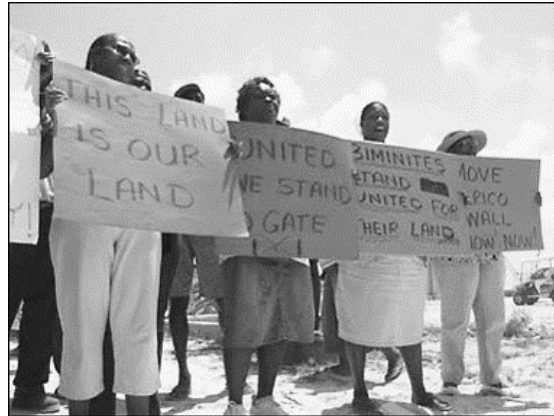 THIS LAND
IS OUR
LAND
UNITED
WE STAND
GATE
BIMINITES
STAND
UNITED FOR
THEIR LAND
MOVE
WALL
NOW! NOW!
Y!